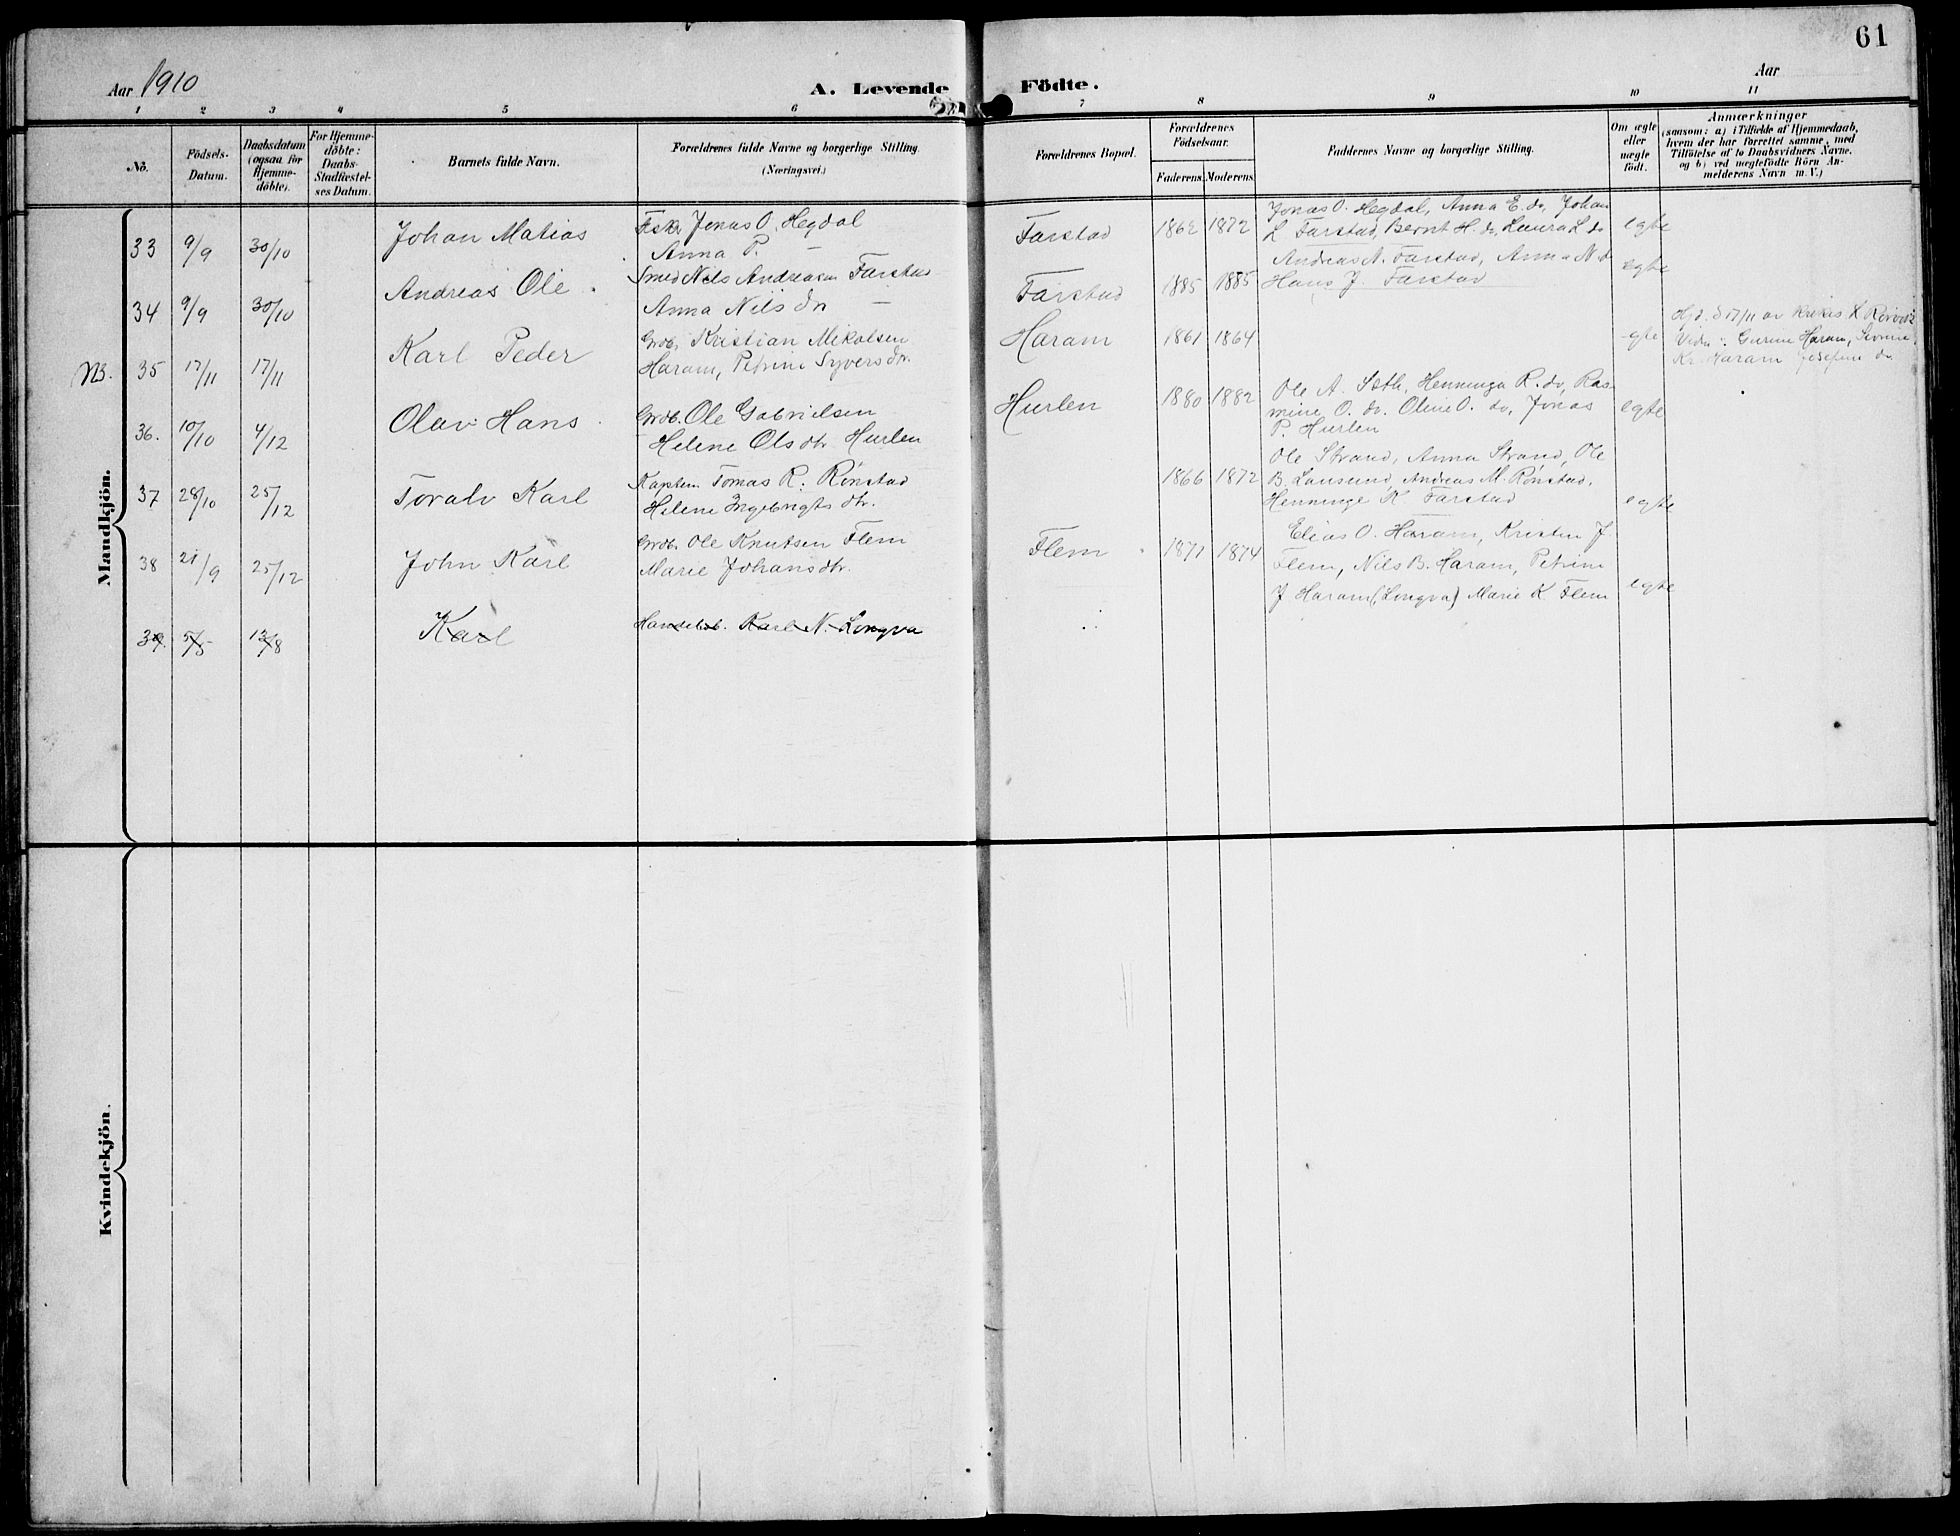 61
Aar 1910
A. Levende Födte.
Aar
1 2 3 4 5 6 7 8 9 10 11
No.
Födsels-
Datum.
Daabsdatum
(ogsaa for
Hjemme-
döbte).
For Hjemme-
döbte:
Daabs-
Stadfæstel-
ses Datum.
Barnets fulde Navn.
Forældrenes fulde Navne og borgerlige Stilling.
(Næringsvei.)
Forældrenes Bopæl.
Forældrenes
Födselsaar.
Faderens. Moderens.
Faddernes Navne og borgerlige Stilling.
Om ægte
eller
uægte
födt.
Anmærkninger
(saasom: a) i Tilfælde af Hjemmedaab,
hvem der har forrettet samme, med
Tilföielse af to Daabsvidners Navne,
og b) ved uegtefödte Börn An-
melderens Navn m. V.)
Mandkjön.
33 9/9 30/10 Johan Matias
Fisk. Jonas O. Hegdal
Anna P. —
Farstad 1862 1872
Jonas O. Hegdal, Anna E. do, Johan
L Farstad, Bernt H. do, Laura L do
egte
34 9/9 30/10 Andreas Ole
Smed Nils Andreasen Farstad
Anna Nils dr —
Farstad 1885 1885
Andreas N. Farstad, Anna N d
Hans J. Farstad
egte
NB. 35 17/11 17/11 Karl Peder
Grdb. Kristian Mikalsen
Haram, Petrine Syvers dr.
Haram 1861 1864
egte
Hjd. d 17/11 av
Vidn: Gurine Haram,
Kr. Haram Josefine do
36. 10/10 4/12 Olav Hans
Grdb. Ole Gabrielsen
Helene Ols dtr Hurlen
Hurlen 1880 1882
Ole A. Sæth, Henninga R. do, Ras-
mine O. do. Oline O. do, Jonas
P. Hurlen
egte
37 28/10 25/12 Toralv Karl
Kaptein Tomas R. Rønstad
Helene Ingebrigts dtr.
1866 1872
Ole Strand, Anna Strand, Ole
B. Lausund, Andreas M. Rønstad,
Henninge K Farstad
egte
38 21/9 25/12 John Karl
Grdb. Ole Knutsen Flem
Marie Johans dtr.
Flem 1871 1874
Elias O. Haram, Kristen J.
Flem, Nils B. Haram, Petrine
J Haram (Longva) Marie K. Flem
egte
39. 5/5 13/8 Karl
Handelsb. Karl N. Longva
Kvindekjön.